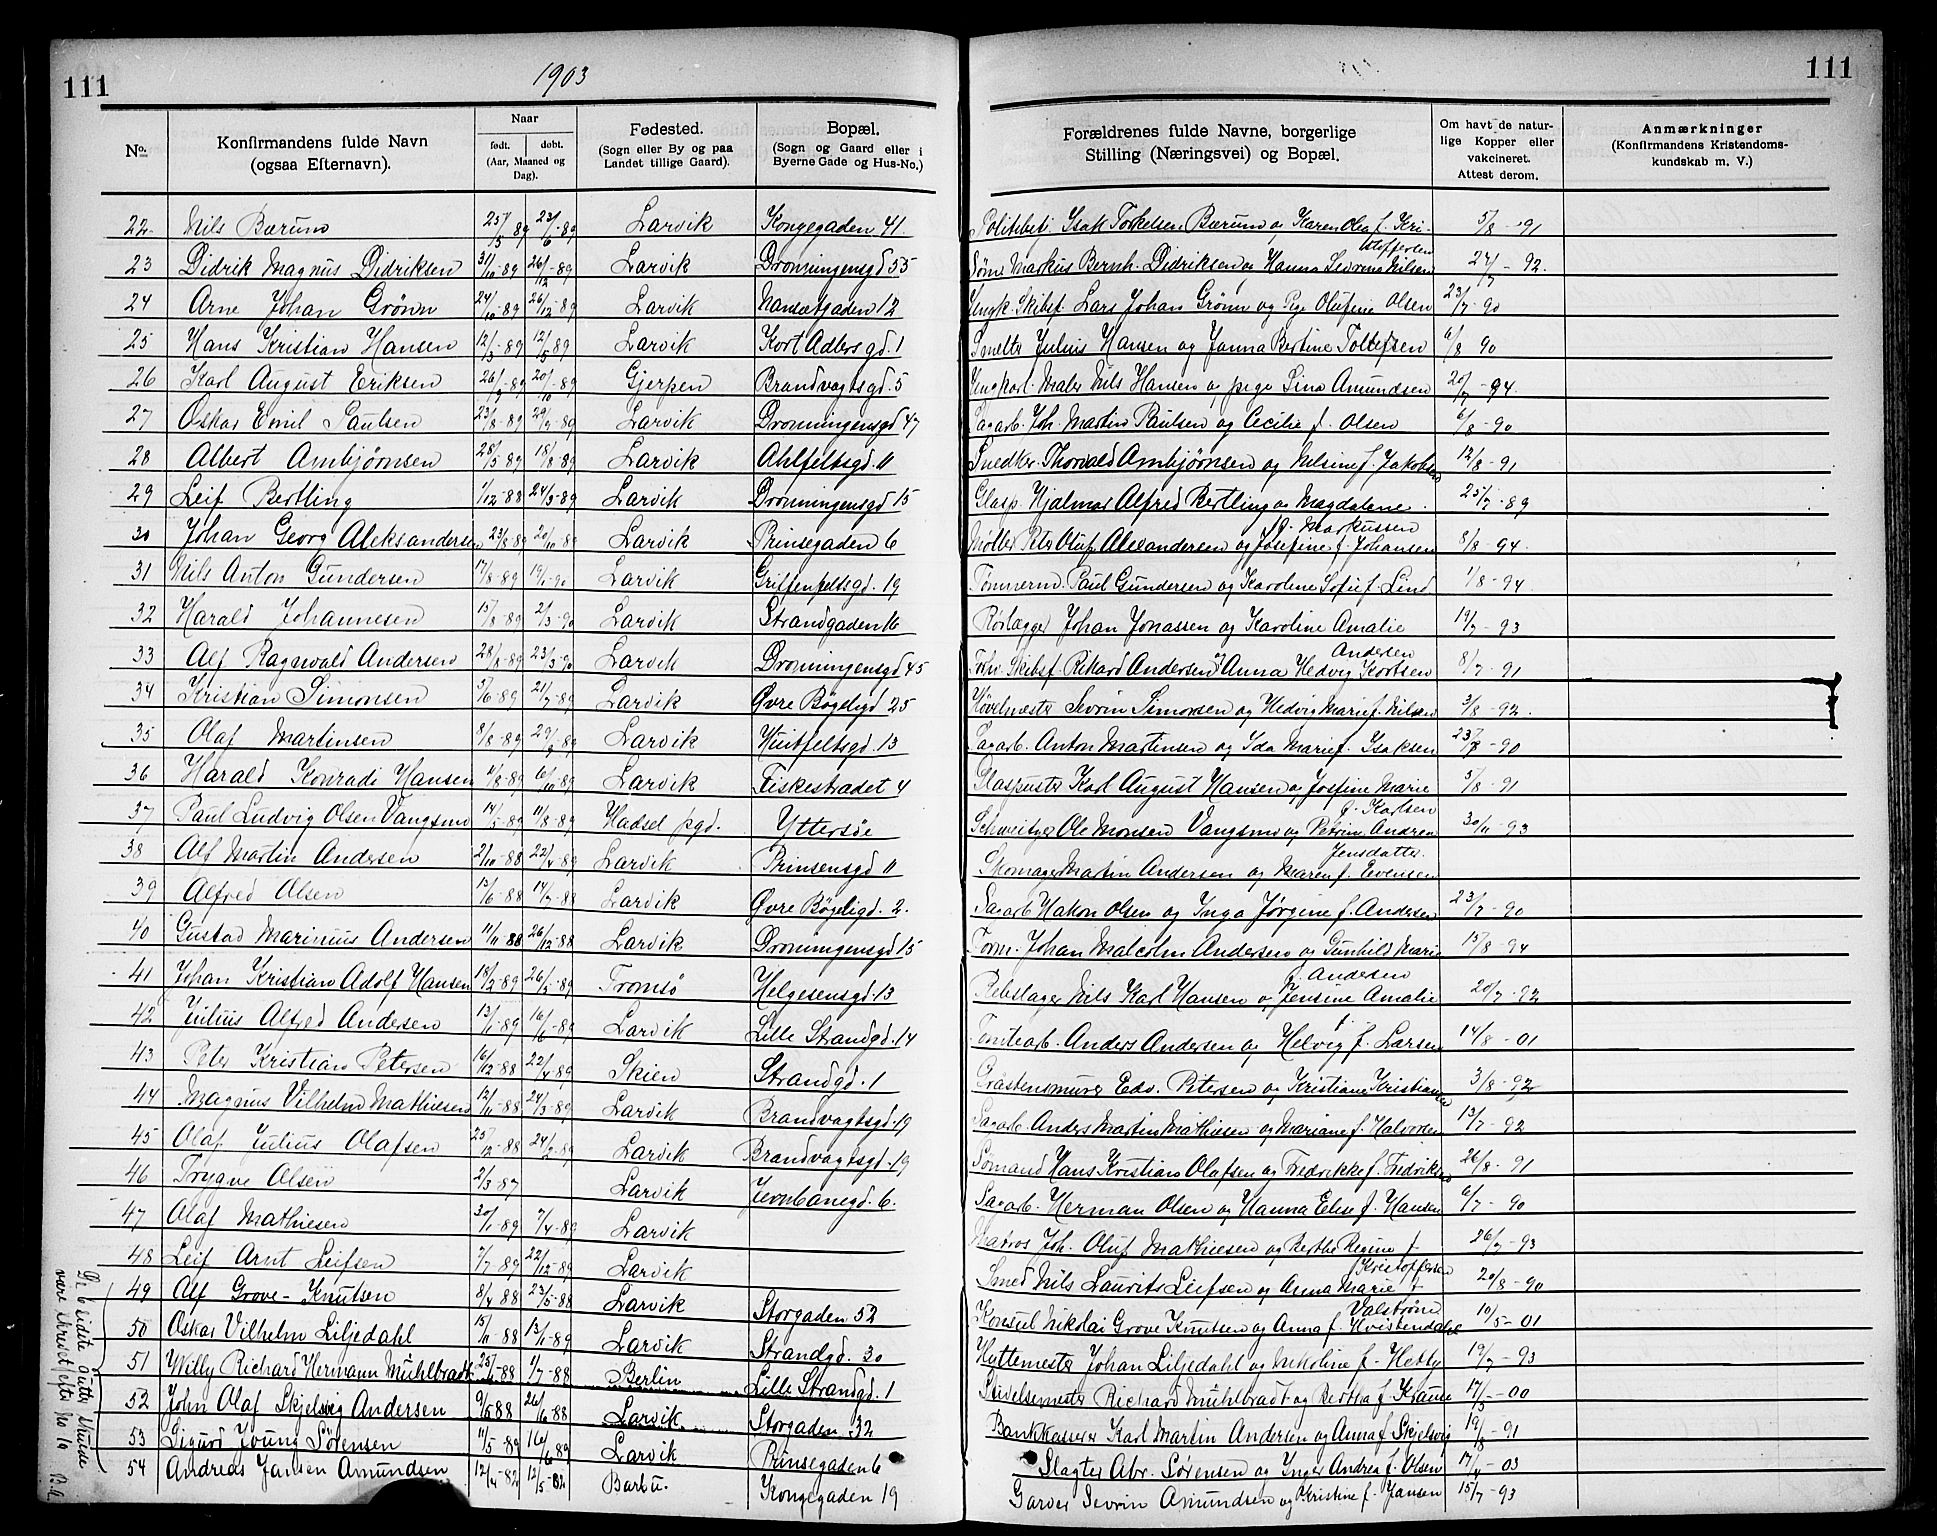 111
1903
111
No.
Konfirmandens fulde Navn (ogsaa Efternavn).
Naar
født. døbt.
(Aar, Maaned og Dag).
Fødested.
(Sogn eller By og paa Landet tillige Gaard).
Bopæl.
(Sogn og Gaard eller i Byerne Gade og Hus-No.)
Forældrenes fulde Navne, borgerlige Stilling (Næringsvei) og Bopæl.
Om havt de naturlige Kopper eller vakcineret. Attest derom.
Anmærkninger
(Konfirmandens Kristendomskundskab m. V.)
22 Nils Bærum 25/5 89 23/6-89 Larvik Kongegaden 41. Politibt. Isak Torkelsen Bærum og Karen Olea f. Kristoffersen 5/8-91
23 Didrik Magnus Didriksen 31/10-89 26/12-89 Larvik Dronningensgd 55 Søm. Markus Bernh. Didriksen og Hanna Severine Nilsen 27/7-92.
24 Arne Johan Grönn 24/10-89 26/12-89 Larvik Nansetgaden 12 Ungk. Skibsf. Lars Johan Grönn og Pige Olufine Olsen 23/7-90
25 Hans Kristian Hansen 12/3-89 12/5 89 Larvik Kort Adlers gd. 1 Smelter Julius Hansen og Janna Bertine Tollefsen 6/8 90
26 Karl August Eriksen 26/9-89 20/10-89 Gjerpen Brandvagtsgd. 5 Ungkarl. Maler Nils Hansen og pige Lina Amundsen 20/7-94.
27 Oskar Emil Paulsen 23/8-89 29/9-89 Larvik Dronningensgd 47 Sagarb. Joh. Martin Paulsen og Cecilie f. Olsen 6/8-90
28 Albert Ambjørnsen 28/5 89 18/8-89 Larvik Ahlfeltsgd. 11 Snedker. Thorvald Ambjörnsen og Nilsine f. Jakobsen 12/8-91
29 Leif Bertling 1/12-88 24/3-89 Larvik Dronningensgd 15 Glasp. Hjalmar Alfred Bertling og Magdalene f. Markussen 25/7-89
30 Johan Georg Aleksandersen 23/8-89 20/10-89 Larvik Prinsegaden 6 Møller Peter Oluf Alexandersen og Josefine f. Johansen 8/8-94.
31 Nils Anton Gundersen 17/8-89 19/1-90 Larvik Griffenfeltsgd. 19 Tømmerm. Paul Gundersen og Karoline Sofie f. Lind 1/8-94
32 Harald Johannesen 15/8-89 2/3-90 Larvik Strandgaden 16 Rørlægger Johan Jonassen og Karoline Amalie Andersen 19/7-93
33 Alf Ragnvald Andersen 28/8-89 23/3-90 Larvik Dronningensgd 45 Forhv. Skibsf. Rikard Andersen og Anna Hedvig Kortsen 8/7-91
34 Kristian Simonsen 5/6-89 21/7-89 Larvik Øvre Bøgeligd 25 Høvelmester Sevrin Simonsen og Hedvig Marie f. Nilsen 3/8-92.
35 Olaf Martinsen 8/8-89 29/9-89 Larvik Huitfeltsgd. 13 Sagarb. Anton Martinsen og Ida Marie f. Isaksen 23/7-90
36 Harald Konradi Hansen 11/8-89 6/10-89 Larvik Fiskestrædet 4 Glaspuster Karl August Hansen og Josefine Marie f. Karlsen 5/8-91
37 Paul Ludvig Olsen Vangsmo 14/5-89 11/8-89 Hadsel pgd. Yttersøe Schweitzer Ole Monsen Vangsmo og Petrine Andrea Jensdatter. 30/11-93
38 Alf Martin Andersen 2/10-88 22/4-89 Larvik Prinsensgd 11 Skomager Martin Andersen og Maren f. Evensen
39 Alfred Olsen 13/6-88 14/7-88 Larvik Øvre Bøgeligd. 2. Sagarb Hakon Olsen og Inga Jørgine f. Andersen 23/7-90
40 Gustav Marinius Andersen 11/11-88 26/12-88 Larvik Dronningensgd 15 Tom. Johan Malcolm Andersen og Gunhild Marie f. Andersen 15/8-94
41 Johan Kristian Adolf Hansen 18/3-89 26/5-89 Tromsø Helgesensgd. 13 Rebslager Nils Karl Hansen og Jensine Amalie f. 20/7-92
42 Julius Alfred Andersen 13/1-89 16/6-89 Larvik Lille Strandgd. 14 Tomtearb. Anders Andersen og Helvig f. Larsen 14/8-01
43 Peter Kristian Petersen 16/12-88 22/4-89 Skien Strandgd. 1 Gråstensmurer Edv. Petersen og Kristiane Kristiansen 3/8-92
44 Magnus Vilhelm Mathiesen 12/11-88 24/3-89 Larvik Brandvagtsgd. 19 Sagarb. Anders Martin Mathiesen og Mariane f. Halvorsen 13/7-92
45 Olaf Julius Olafsen 25/12-88 24/2-89 Larvik Brandvagtsgd. 19 Sømand Hans Kristian Olafsen og Fredrikke f. Fredriksen 26/8-91
46 Trygve Olsen 2/3-87 Larvik Jernbanegd. 6. Sagarb. Herman Olsen og Hanna Elise f. Hansen 6/7-90
47 Olaf Mathiesen 30/1-89 7/4-89 Larvik Matros Joh. Oluf Mathiesen og Berthe Regine f. Kristoffersen 26/7-93
48 Leif Arnt Leifsen 7/7-89 22/12-89 Larvik Smed Nils Laurits Leifsen og Anna Marie f. Valstrøm 20/8-90
49 Alf Grove-Knutsen 8/4 88 23/5-88 Larvik Storgaden 52 Konsul Nikolai Grove Knutsen og Anna f. Hvistendahl 10/5-01
50 Oskar Vilhelm Liljedahl 15/11-88 13/1-89 Larvik Strandgd. 30 Hyttemester Johan Liljedahl og Nikoline f. Hetty 19/7-93
51 Willy Richard Hermann Mühlbradt 25/5-88 1/7-88 Berlin Lille Strandgd. 1 Richard Mühlbradt og Bertha f. Krause 17/5-00
52 John Olaf Skjelsvig Andersen 9/5 88 26/6-88 Larvik Storgaden 32 Bankkasserer Karl Martin Andersen og Anna f. Skjelsvig 19/8-91
53 Sigurd Young Sørensen 11/5-89 16/6 89 Larvik Prinsegaden 6 Slagter Abr. Sørensen og Inger Andrea f. Olsen 17/4-03
54 Andreas Jansen Amundsen 12/4-82 12/5-82 Barbu. Kongegaden 19 Garver Sevrin Amundsen og Kristine f. Jansen 15/7-93
De 6 sidste Gutter skulde
være skrevet efter No 10